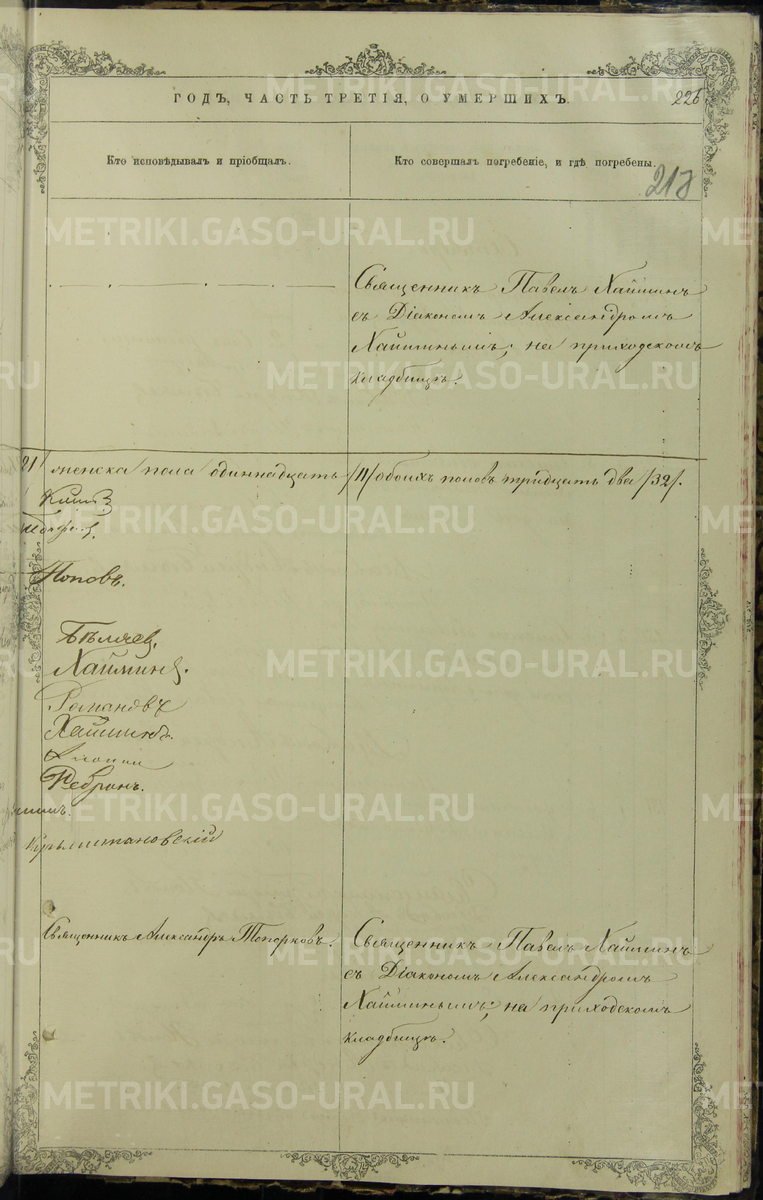 ГОДЪ, ЧАСТЬ ТРЕТІЯ, О УМЕРШИХЪ.
226
Кто исповѣдывалъ и пріобщалъ.
Кто совершалъ погребеніе, и гдѣ погребены.
213
METRIKI.GASO-URAL.RU
Священникъ Павелъ Хайминъ
съ Діакономъ Александромъ
Хайминымъ; на приходскомъ
кладбищѣ.
21/ женска пола одиннадцать /11/ обоихъ половъ тридцать два /32/.
Поповъ.
Бѣляев.
Хайминъ.
Романовъ
Хайминъ.
Священникъ Александръ Топорковъ.
Священникъ Павелъ Хайминъ
съ Діакономъ Александромъ
Хайминымъ; на приходскомъ
кладбищѣ.
METRIKI.GASO-URAL.RU